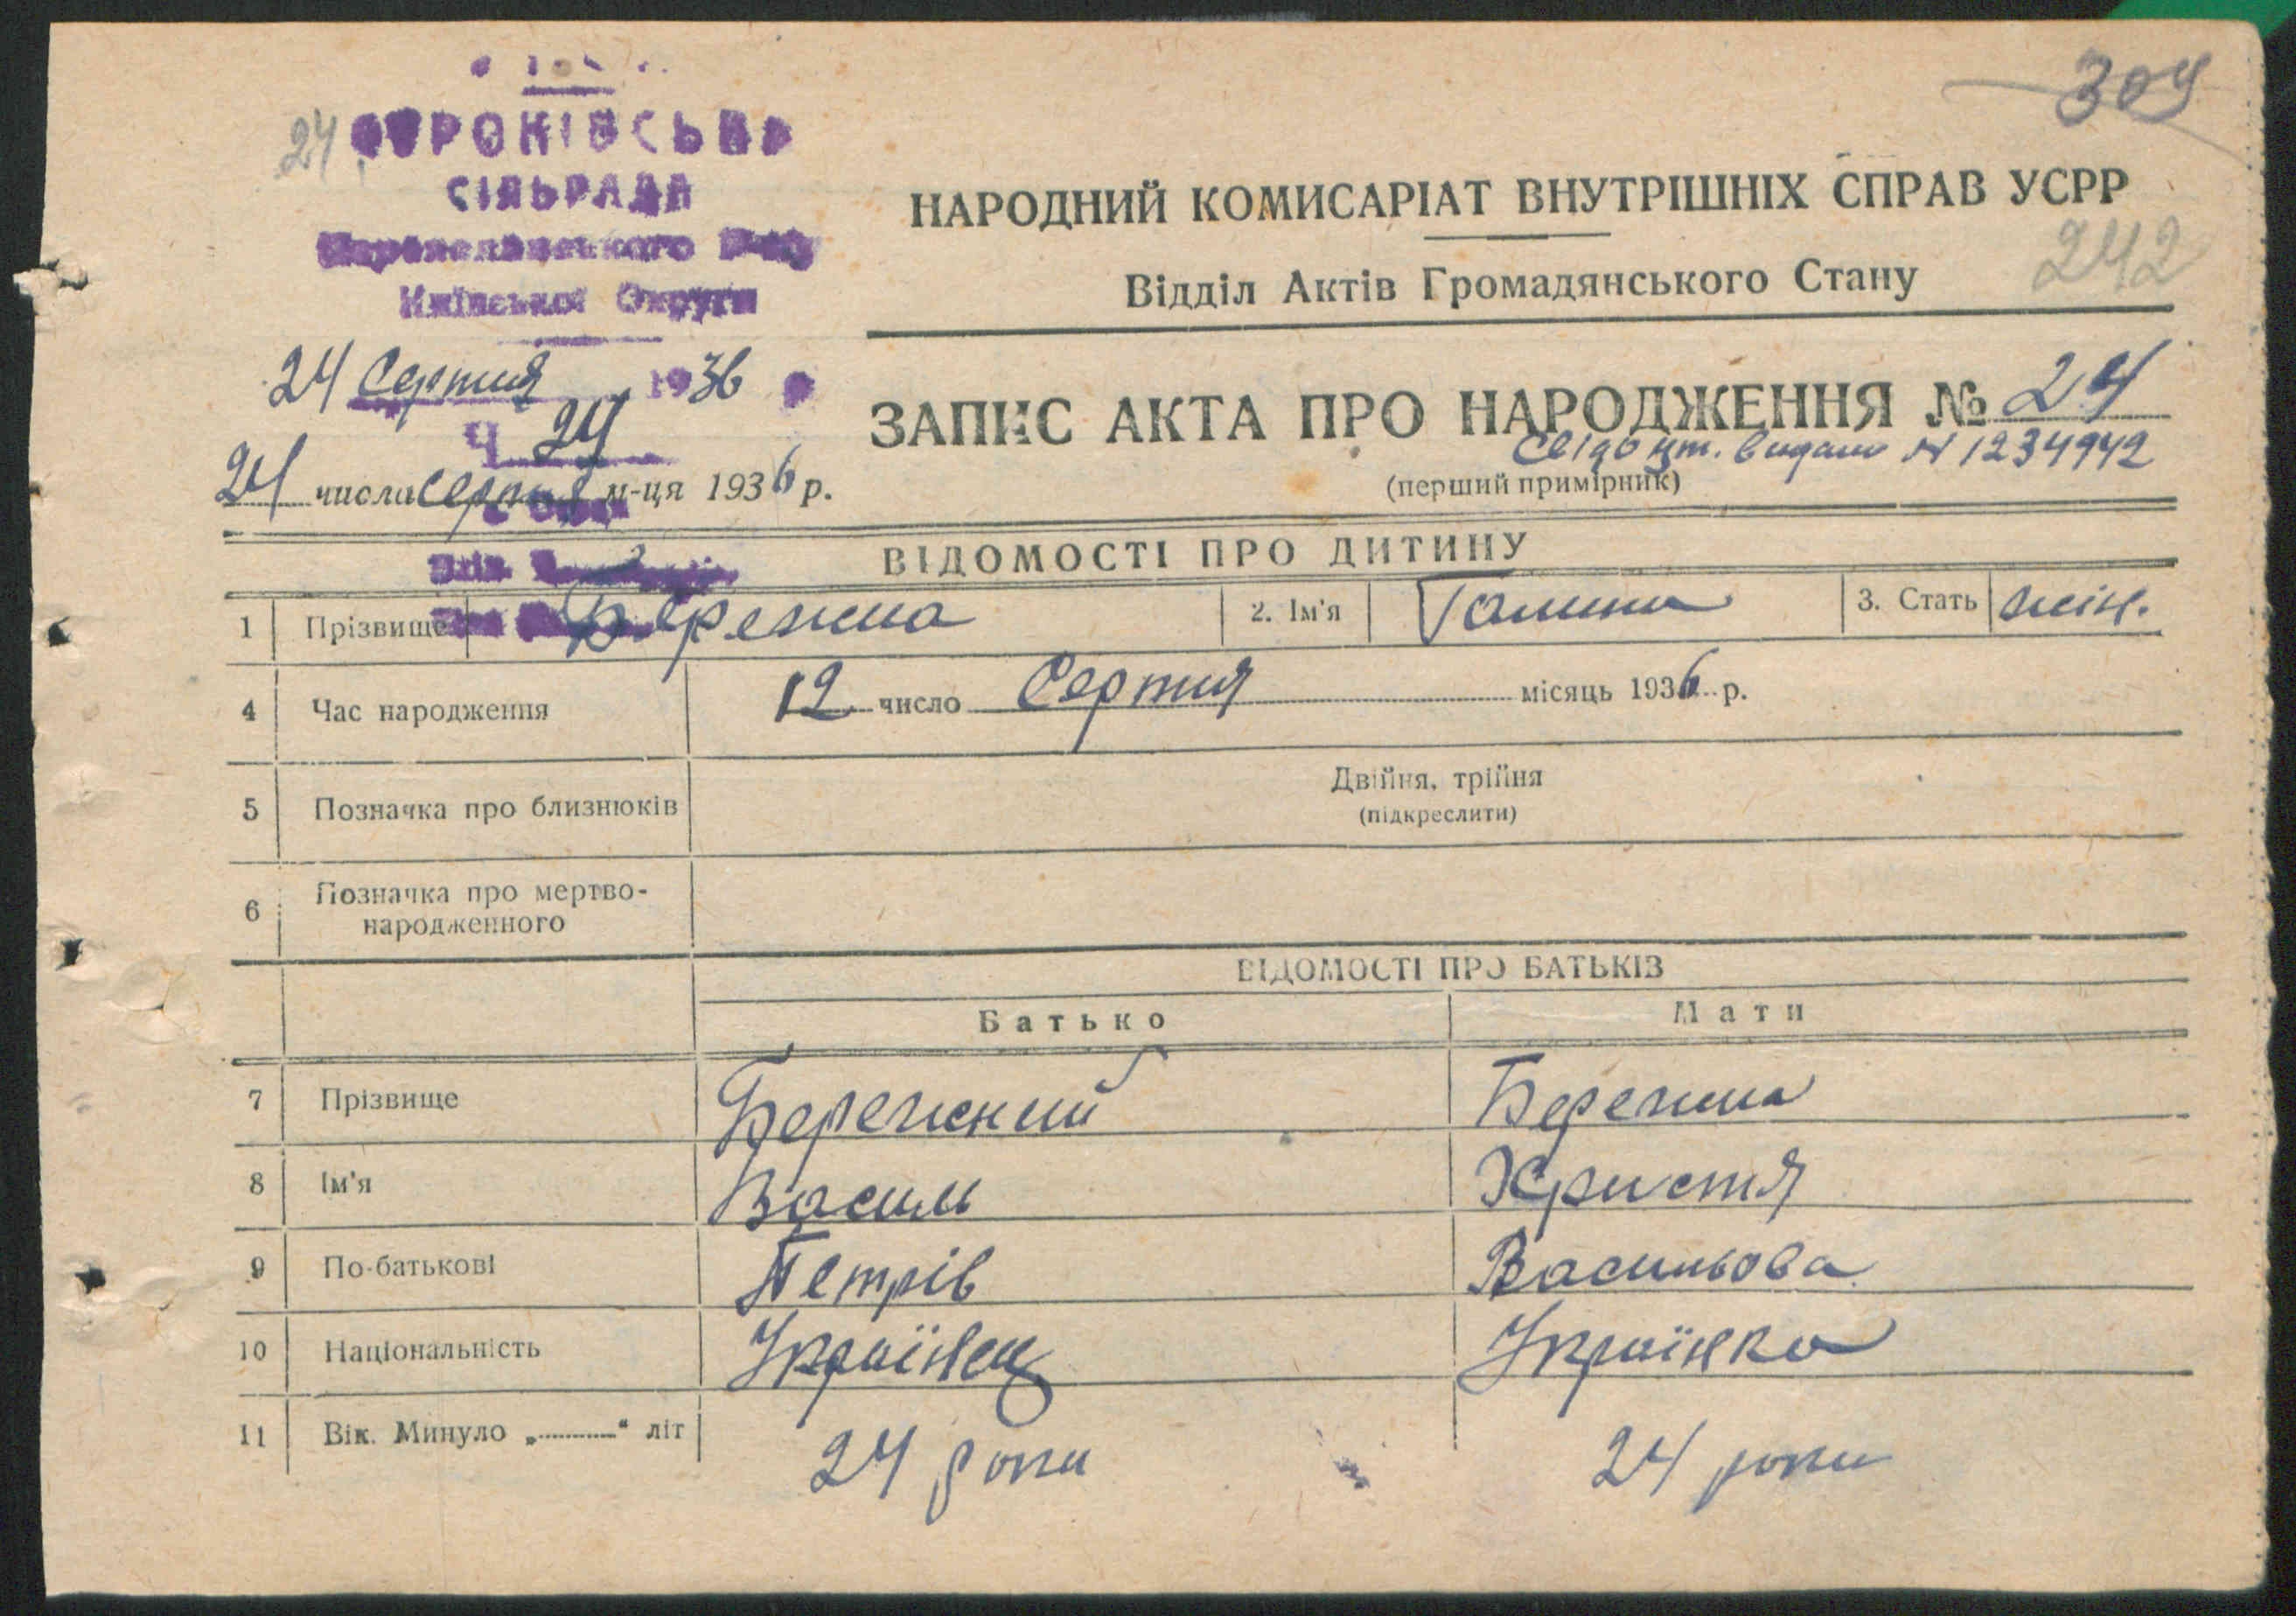 309
24
СІЛЬРАДА
Київської Округи
24 Серпня 1936
Ч 24
24 числа серпня м-ця 1936 р.
НАРОДНИЙ КОМИСАРІАТ ВНУТРІШНІХ СПРАВ УСРР
242
Відділ Актів Громадянського Стану
ЗАПИС АКТА ПРО НАРОДЖЕННЯ № 24
видано N 1234942
(перший примірник)
ВІДОМОСТІ ПРО ДИТИНУ
1 Прізвище Бережна 2. Ім'я Галина 3. Стать жін.
4 Час народження 12 число Серпня місяць 1936 р.
5 Позначка про близнюків Двійня, трійня
(підкреслити)
6 Позначка про мертво-
народженного
ВІДОМОСТІ ПРО БАТЬКІВ
Батько Мати
7 Прізвище Бережний Бережна
8 Ім'я Василь Христя
9 По-батькові Петрів Васильова
10 Національність Українец Українка
11 Вік. Минуло „ “ літ 24 роки 24 роки